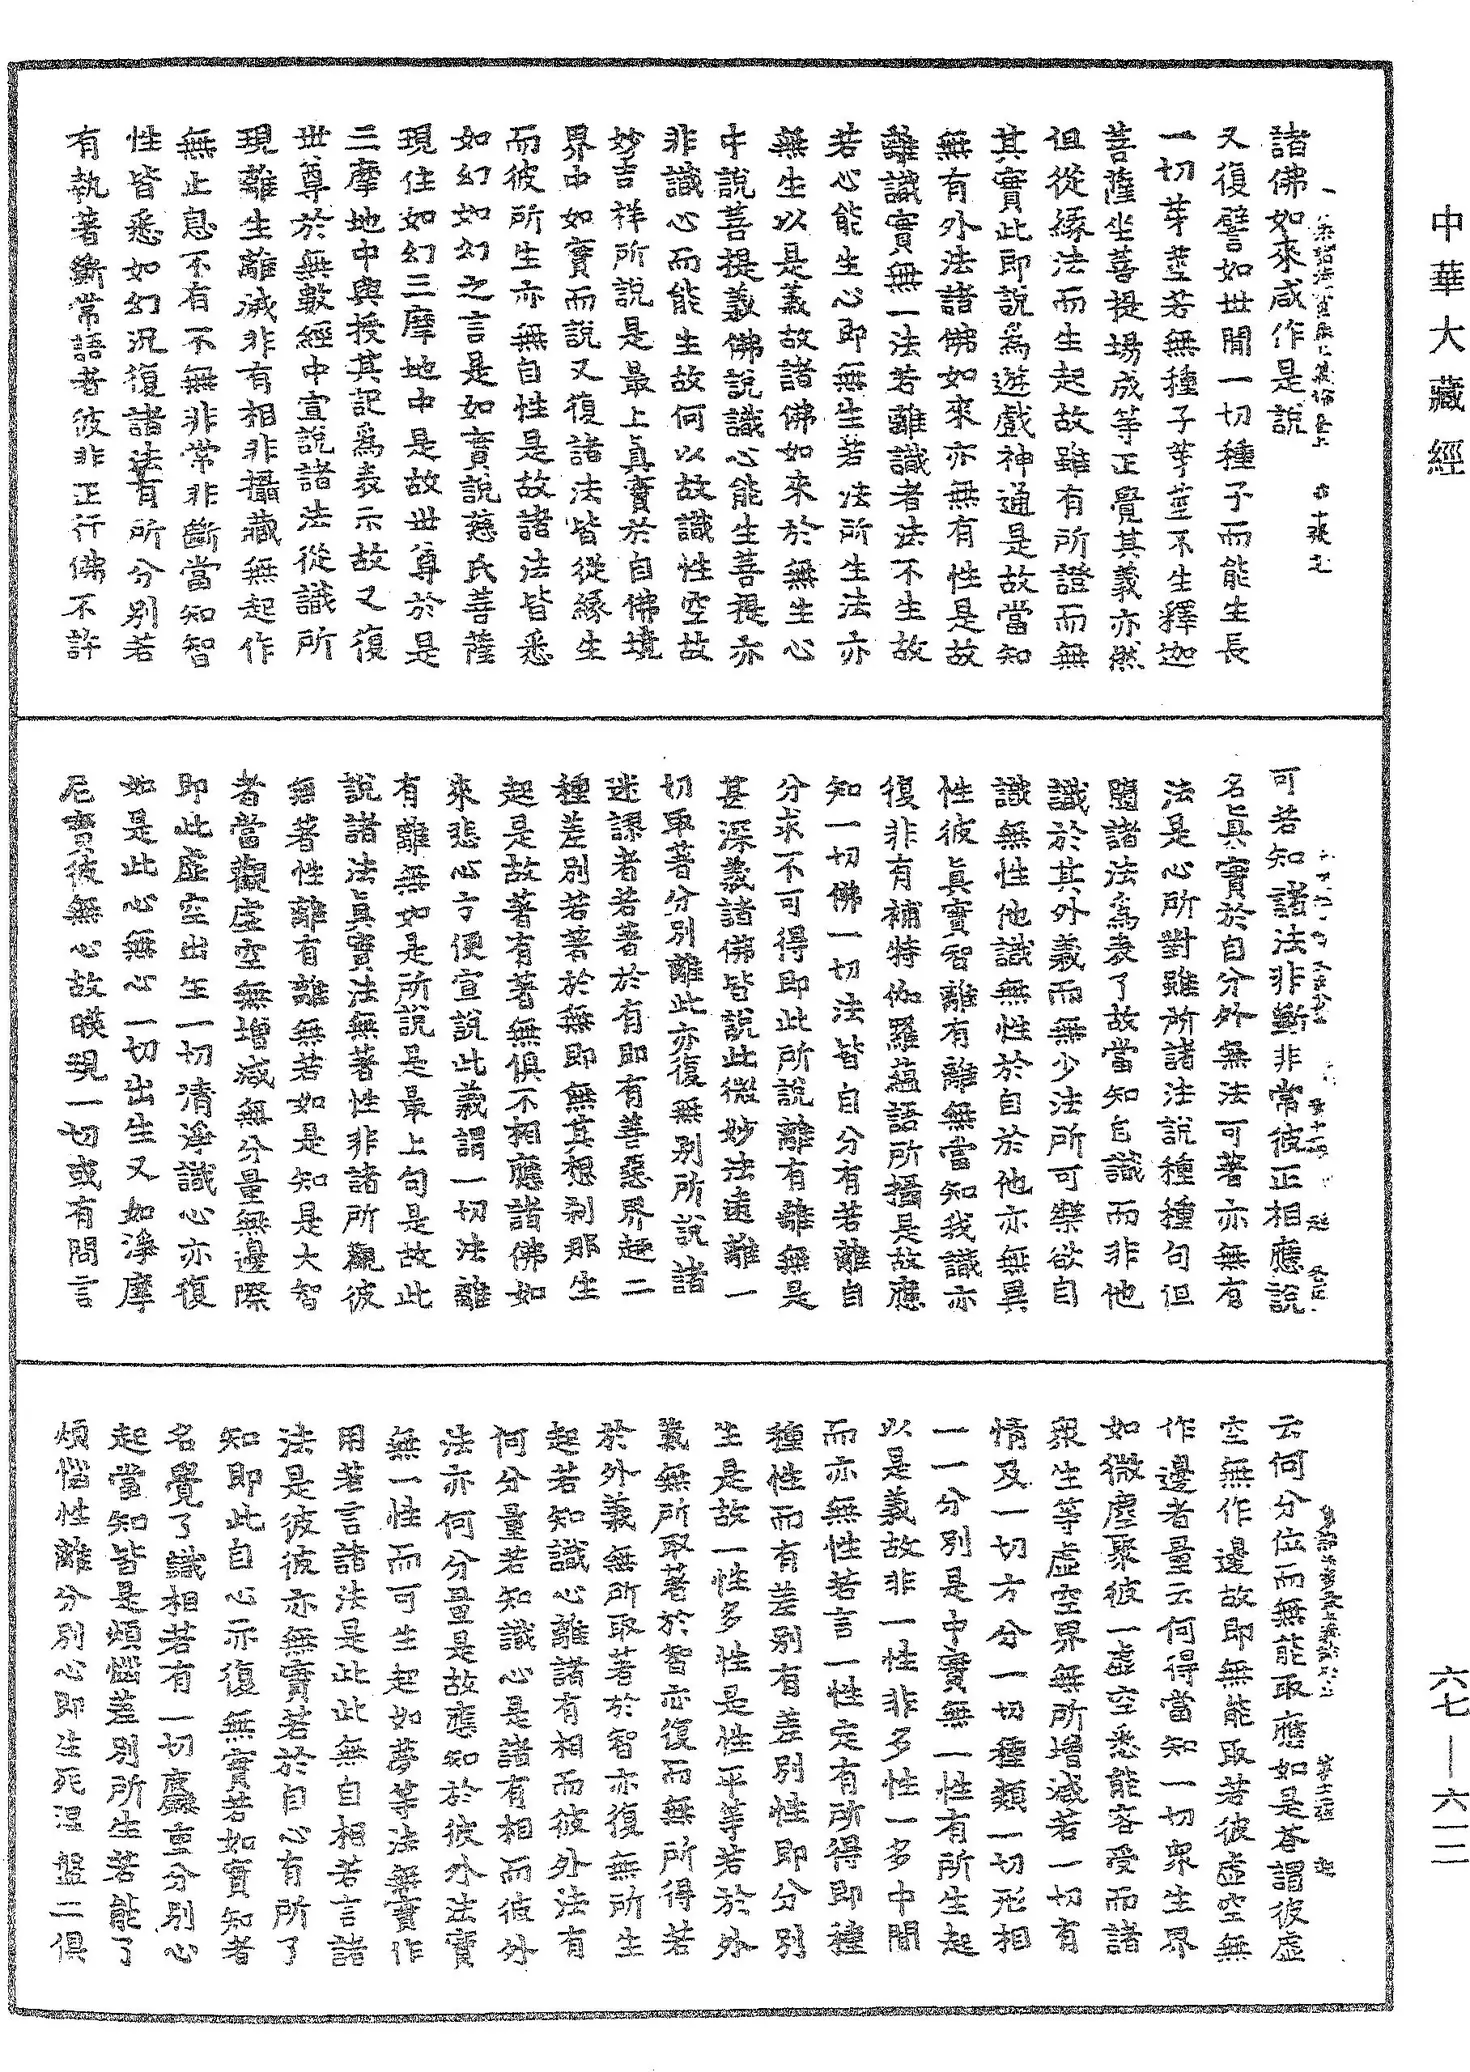 中華大藏經
諸佛如來咸作是說
又復譬如世間一切種子而能生長
一切芽莖若無種子等莖不生釋迦
菩薩坐菩提場成等正覺其義亦然
但從緣法而生起故雖有所證而無
其實此即說為遊戲神通是故當知
無有外法諸佛如來亦無有性是故
離識實無一法若離識者法不生故
若心能生心即無生若法所生法亦
無生以是義故諸佛如來於無生心
中說菩提義佛說識心能生菩提亦
非識心而能生故何以故識性空故
妙吉祥所說是最上真實於自佛境
界中如實而說又復諸法皆從緣生
而彼所生亦無自性是故諸法皆悉
如幻如幻之言是如實說慈氏菩薩
現住如幻三摩地中是故世尊於是
三摩地中與授其記為表示故又復
世尊於無數經中宣說諸法從識所
現離生離滅非有相非攝藏無起作
無止息不有不無非常非斷當知智
性皆悉如幻況復諸法有所分別若
有執著斷常語者彼非正行佛不許
可若知諸法非斷非常彼正相應說
名真實於自分外無法可著亦無有
法是心所對雖所諸法說種種句但
隨諸法為表了故當知自識而非他
識於其外義而無少法所可樂欲自
識無性他識無性於自於他亦無異
性彼真實智離有離無當知我識亦
復非有補特伽羅蘊語所攝是故應
知一切佛一切法皆自分有若離自
分求不可得即此所說離有離無是
甚深義諸佛皆說此微妙法遠離一
切取著分別離此亦復無別所說諸
迷謬者若著於有即有善惡界趣二
種差別若著於無即無其想剎那生
起是故著有著無俱不相應諸佛如
來悲心方便宣說此義謂一切法離
有離無如是所說是最上句是故此
說諸法真實法無著性非諸所觀彼
無著性離有離無若如是知是大智
者當觀虛空無增減無分量無邊際
即此虛空出生一切清淨識心亦復
如是此心無心一切出生又如淨摩
尼寶彼無心故映現一切或有問言
云何分位而無能取應如是荅謂彼虛
空無作邊故即無能取若彼虛空無
作邊者量云何得當知一切眾生界
如微塵聚彼一虛空悉能容受而諸
眾生等虛空界無所增減若一切有
情及一切方分一切種類一切形相
一一分別是中實無一性有所生起
以是義故非一性非多性一多中間
而亦無性若言一性定有所得即種
種性而有差別有差別性即分別
生是故一性多性是性平等若於外
義無所取著於智亦復而無所得若
於外義無所取著於智亦復無所生
起若知識心離諸有相而彼外法有
何分量若知識心是諸有相而彼外
法亦何分量是故應知於彼外法實
無一性而可生起如夢等法無實作
用若言諸法是此此無自相若言諸
法是彼彼亦無實若於自心有所了
知即此自心亦復無實若如實知者
名覺了識相若有一切麤重分別心
起當知皆是煩惱差別所生若能了
煩惱性離分別心即生死涅盤二俱
六七—六一二